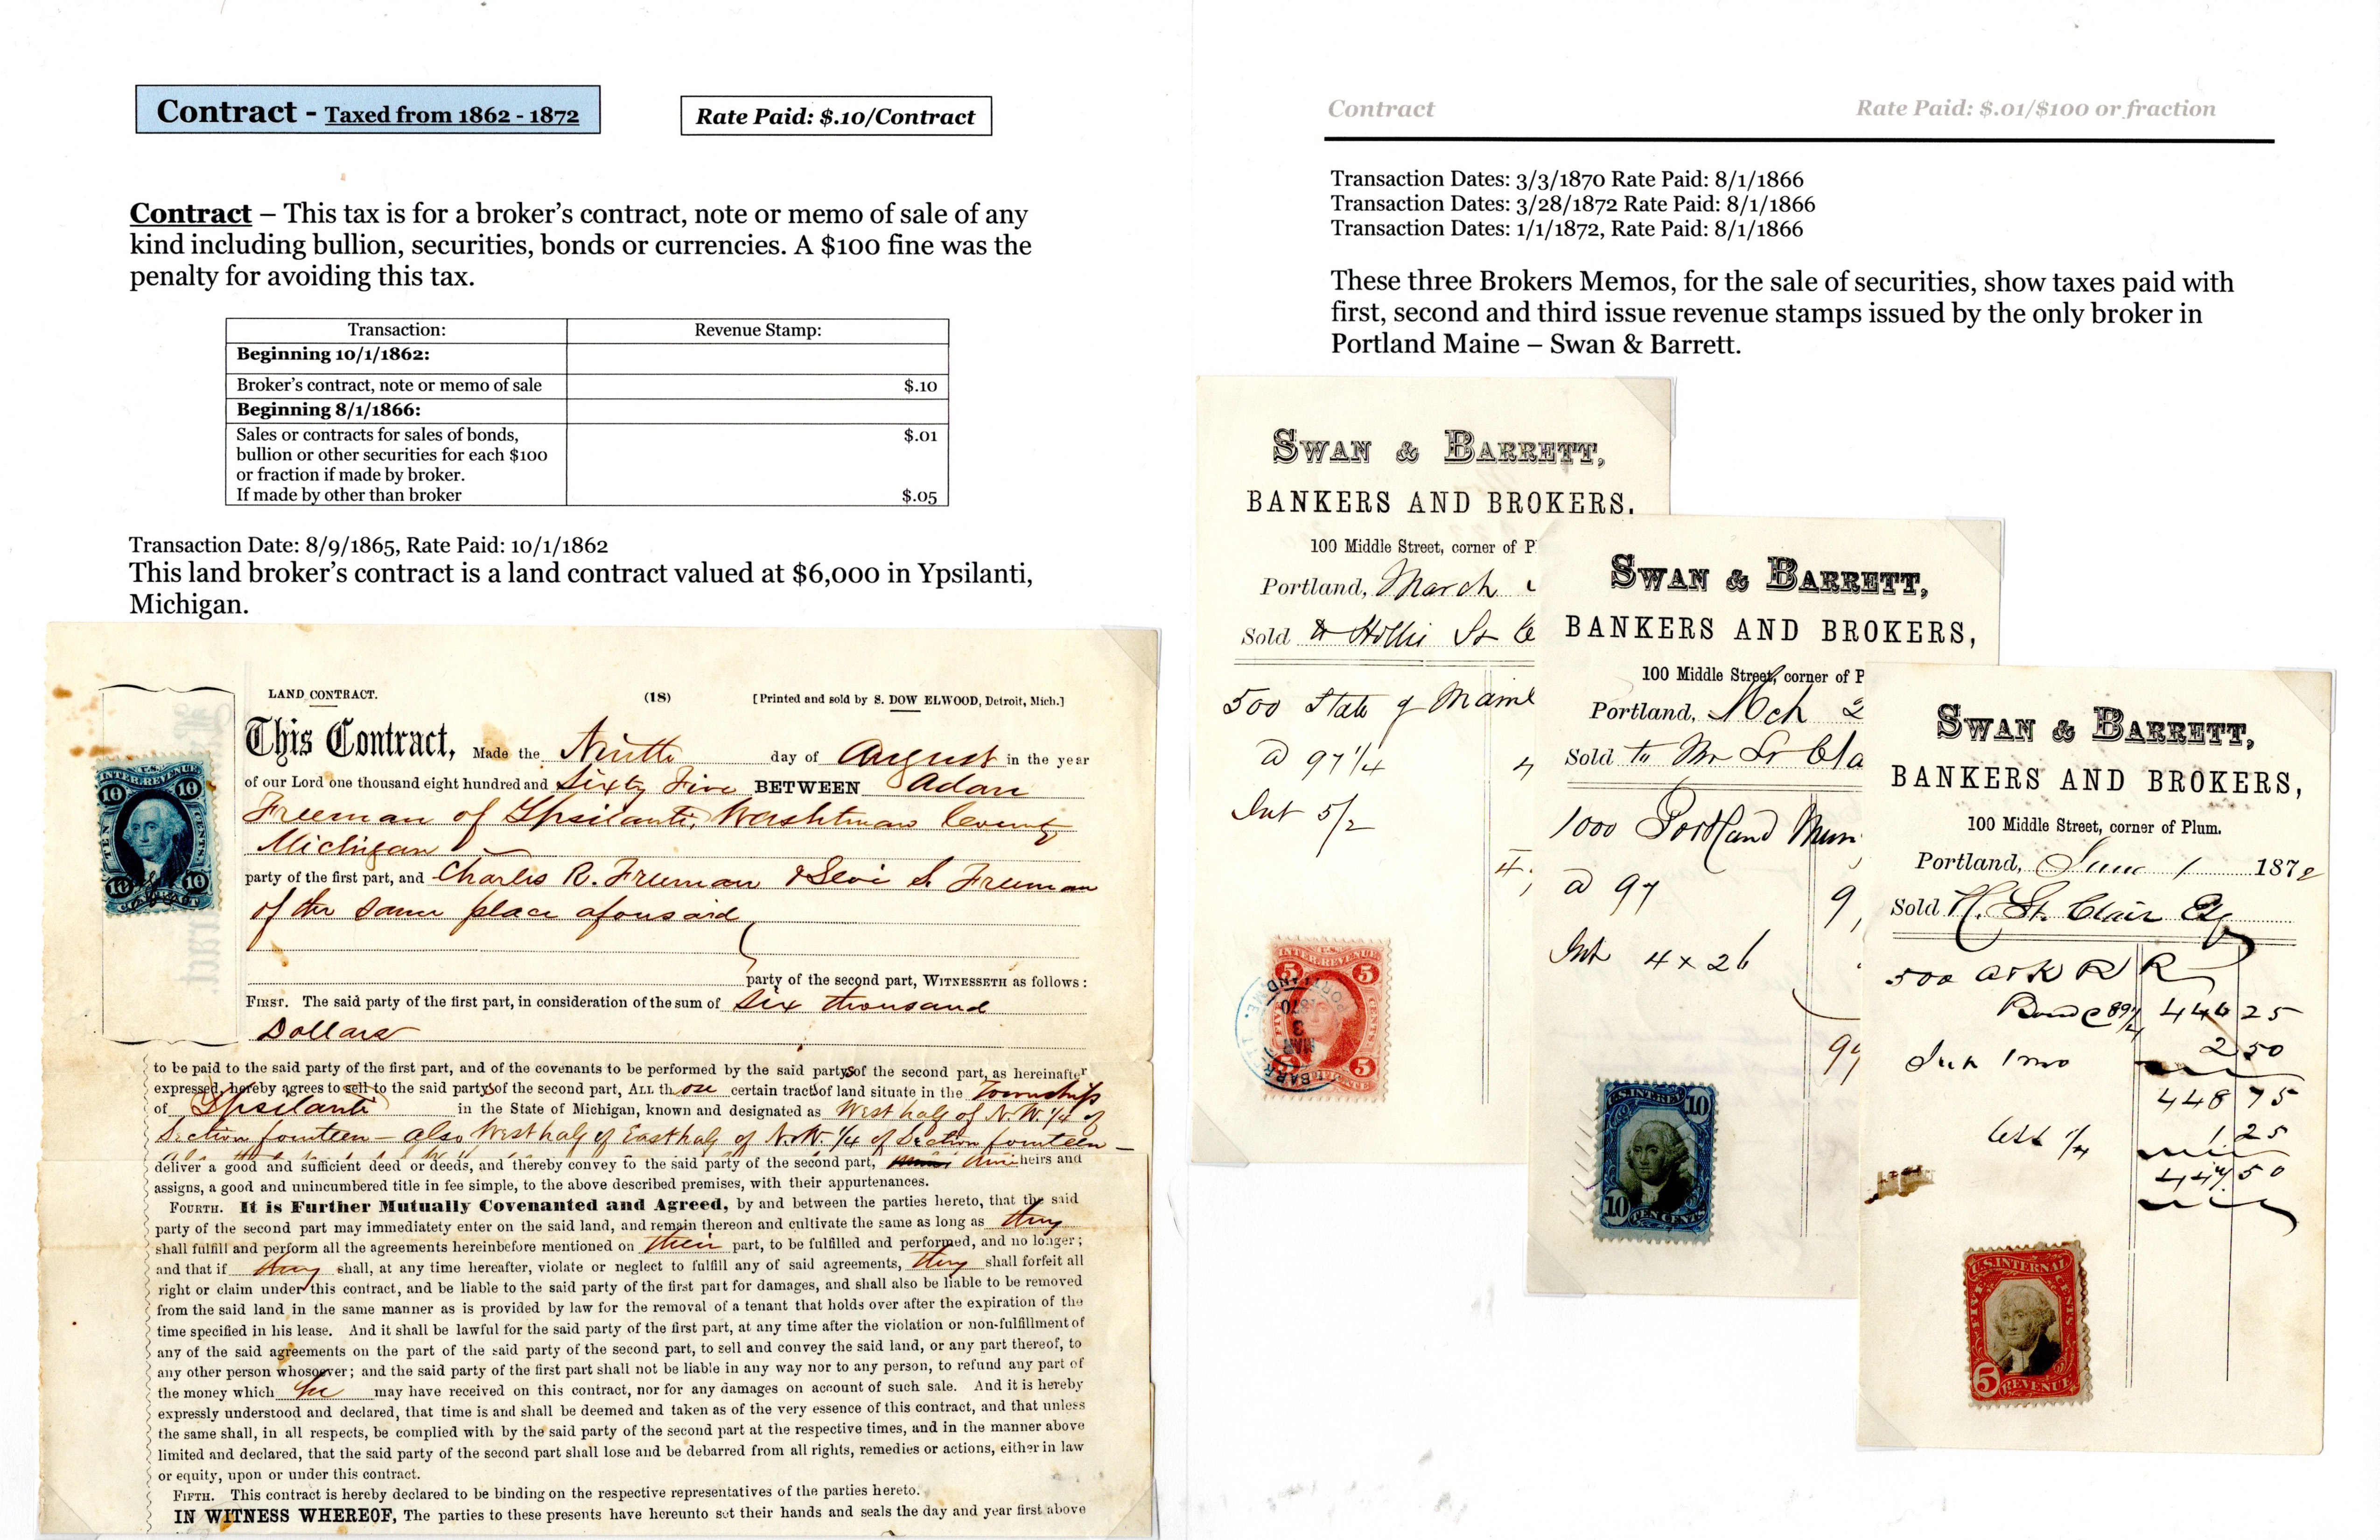 Contract - Taxed from 1862 - 1872
Rate Paid: $.10/Contract
Contract – This tax is for a broker's contract, note or memo of sale of any
kind including bullion, securities, bonds or currencies. A $100 fine was the
penalty for avoiding this tax.
Transaction: Revenue Stamp:
Beginning 10/1/1862:
Broker's contract, note or memo of sale $.10
Beginning 8/1/1866:
Sales or contracts for sales of bonds, $.01
bullion or other securities for each $100
or fraction if made by broker.
If made by other than broker $.05
Transaction Date: 8/9/1865, Rate Paid: 10/1/1862
This land broker's contract is a land contract valued at $6,000 in Ypsilanti,
Michigan.
LAND CONTRACT. (18) [Printed and sold by S. DOW ELWOOD, Detroit, Mich.]
This Contract, Made the Ninth day of August in the year
of our Lord one thousand eight hundred and Sixty Five BETWEEN Adam
Freeman of Ypsilanti, Washtenaw County
Michigan
party of the first part, and Charles R. Freeman & Levi S. Freeman
of the same place aforesaid
party of the second part, WITNESSETH as follows:
FIRST. The said party of the first part, in consideration of the sum of Six thousand
Dollars
to be paid to the said party of the first part, and of the covenants to be performed by the said partys of the second part, as hereinafter
expressed, hereby agrees to sell to the said partys of the second part, ALL those certain tracts of land situate in the Township
of Ypsilanti in the State of Michigan, known and designated as West half of N.W. 1/4 of
Section fourteen – also West half of East half of N.W. 1/4 of Section fourteen –
deliver a good and sufficient deed or deeds, and thereby convey to the said party of the second part, their heirs and
assigns, a good and unincumbered title in fee simple, to the above described premises, with their appurtenances.
FOURTH. It is Further Mutually Covenanted and Agreed, by and between the parties hereto, that the said
party of the second part may immediately enter on the said land, and remain thereon and cultivate the same as long as they
shall fulfill and perform all the agreements hereinbefore mentioned on their part, to be fulfilled and performed, and no longer;
and that if they shall, at any time hereafter, violate or neglect to fulfill any of said agreements, they shall forfeit all
right or claim under this contract, and be liable to the said party of the first part for damages, and shall also be liable to be removed
from the said land in the same manner as is provided by law for the removal of a tenant that holds over after the expiration of the
time specified in his lease. And it shall be lawful for the said party of the first part, at any time after the violation or non-fulfillment of
any of the said agreements on the part of the said party of the second part, to sell and convey the said land, or any part thereof, to
any other person whosoever; and the said party of the first part shall not be liable in any way nor to any person, to refund any part of
the money which he may have received on this contract, nor for any damages on account of such sale. And it is hereby
expressly understood and declared, that time is and shall be deemed and taken as of the very essence of this contract, and that unless
the same shall, in all respects, be complied with by the said party of the second part at the respective times, and in the manner above
limited and declared, that the said party of the second part shall lose and be debarred from all rights, remedies or actions, either in law
or equity, upon or under this contract.
FIFTH. This contract is hereby declared to be binding on the respective representatives of the parties hereto.
IN WITNESS WHEREOF, The parties to these presents have hereunto set their hands and seals the day and year first above
U.S.
INTER. REVENUE
10 10
TEN CENTS.
10 10
Contract Rate Paid: $.01/$100 or fraction
Transaction Dates: 3/3/1870 Rate Paid: 8/1/1866
Transaction Dates: 3/28/1872 Rate Paid: 8/1/1866
Transaction Dates: 1/1/1872, Rate Paid: 8/1/1866
These three Brokers Memos, for the sale of securities, show taxes paid with
first, second and third issue revenue stamps issued by the only broker in
Portland Maine – Swan & Barrett.
SWAN & BARRETT,
BANKERS AND BROKERS.
100 Middle Street, corner of P
Portland, March
Sold to Hollis St
500 State of Maine
@ 97 1/4
Int 5/2
U.S.
INTER. REVENUE
5 5
FIVE CENTS
5 5
BARRETT
MAR
3
1870
PORTLAND ME.
SWAN & BARRETT,
BANKERS AND BROKERS,
100 Middle Street, corner of P
Portland, Mch 2
Sold to Mr St Cla
1000 Portland Mun
@ 97 9
Int 4 x 26
U.S. INTER. 10
10 TEN CENTS
SWAN & BARRETT,
BANKERS AND BROKERS,
100 Middle Street, corner of Plum.
Portland, June 1 1872
Sold H. St. Clair Esq
500 A & K R R
Bond @ 89 1/4 446 25
Int 1 mo 2 50
448 75
less 1/4 1 25
447 50
U.S. INTERNAL
FIVE CENTS
5 REVENUE